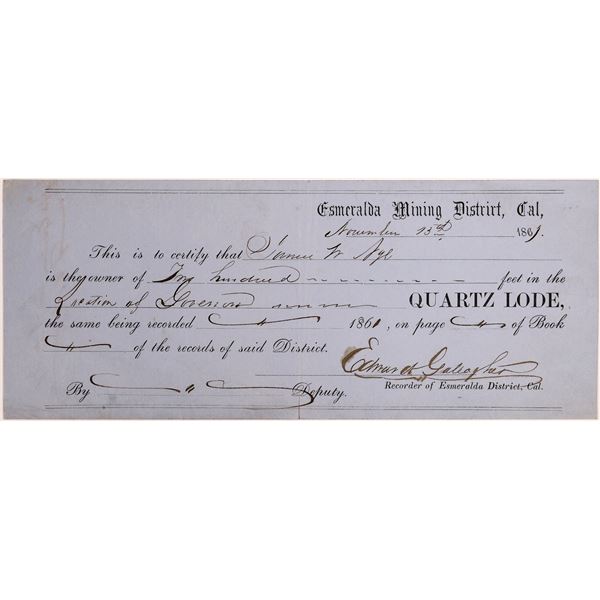 Esmeralda Mining District, Cal,
November 13th 1861.
This is to certify that James W Nye
is the owner of Two hundred feet in the
Location of Governor QUARTZ LODE,
the same being recorded " 1861, on page " of Book
" of the records of said District.
Edward Galeagher
By " Deputy. Recorder of Esmeralda District, Cal.